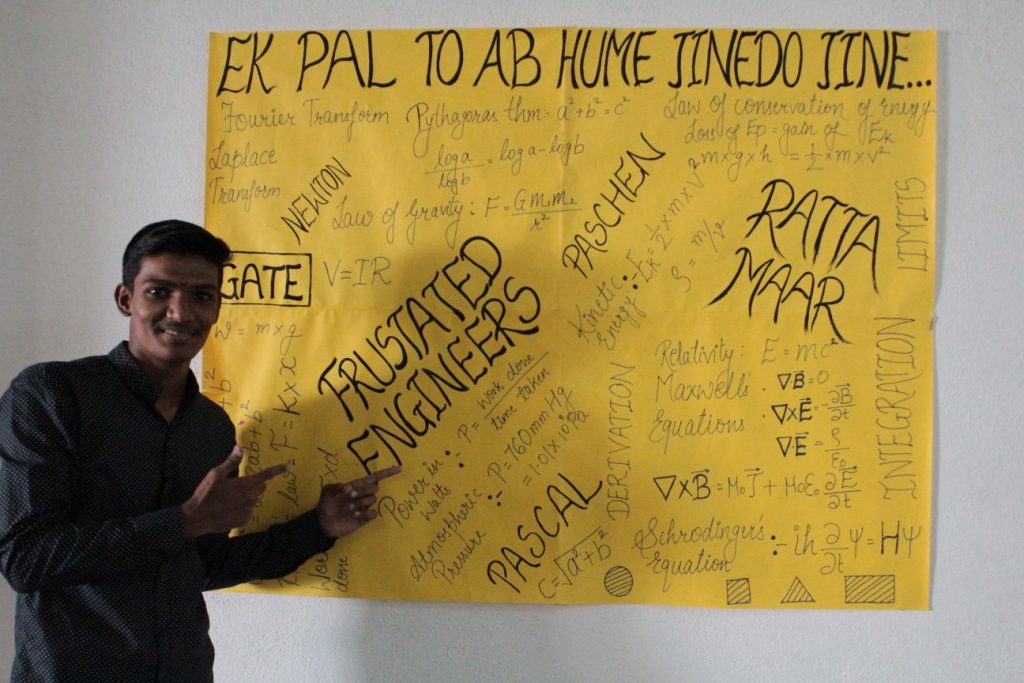 EK PAL TO AB HUME JINEDO JINE...
Fourier Transform
Pythagoras thm:- a²+b²=c²
Law of conservation of Energy
Loss of Ep = gain of Ek
m×g×h = ½×m×v²
Laplace
Transform
log a / log b = log a - log b
NEWTON
Law of Gravity: F = Gm₁m₂ / r²
PASCHEN
Kinetic
Energy :- Ek = ½×m×v²
ρ = m/v
RATTA
MAAR
LIMITS
GATE
V=IR
W = m×g
FRUSTATED
ENGINEERS
law = F = K×x
done
Power in
watts :- P = work done / time taken
Atmospheric
Pressure :- P = 760mm Hg
= 1.01×10⁵Pa
PASCAL
C=√a²+b²
DERIVATION
Relativity: E = mc²
Maxwell's
Equations
∇B⃗=0
∇×E⃗ = ∂B⃗/∂t
∇E⃗ = ρ/ε₀
∇×B⃗ = μ₀J⃗ + μ₀ε₀ ∂E⃗/∂t
INTEGRATION
Schrodinger's
Equation :- iħ ∂/∂t Ψ = HΨ